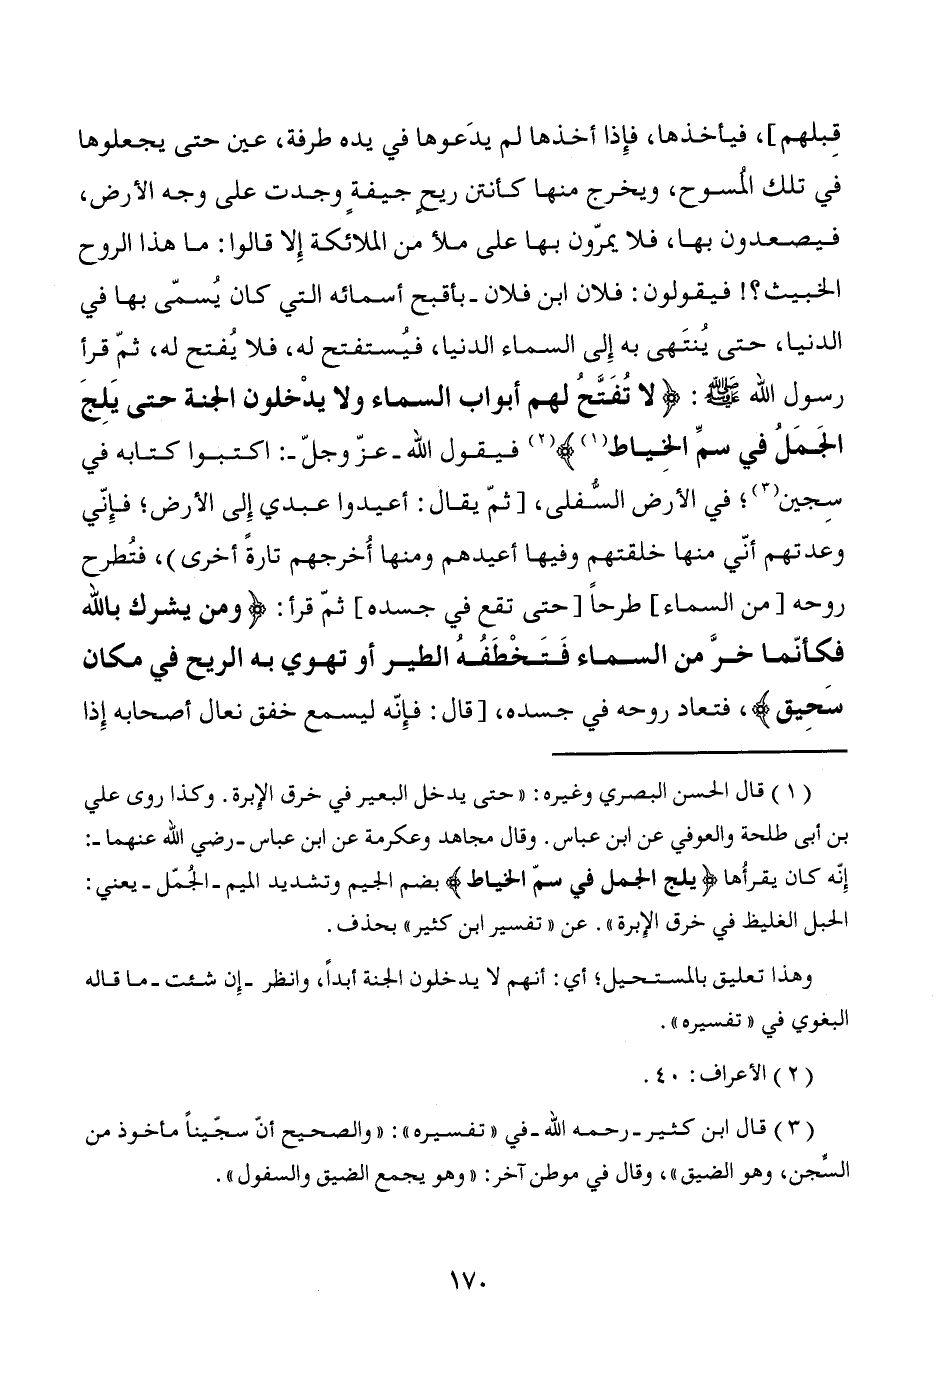 قبلهم]، فيأخذها، فإذا أخذها لم يدَعوها في يده طرفة، عين حتى يجعلوها
في تلك المُسوح، ويخرج منها كأنتن ريحٍ جيفةٍ وجدت على وجه الأرض،
فيصعدون بها، فلا يمرّون بها على ملأ من الملائكة إلا قالوا: ما هذا الروح
الخبيث؟! فيقولون: فلان ابن فلان ـ بأقبح أسمائه التي كان يُسمّى بها في
الدنيا، حتى يُنتَهى به إلى السماء الدنيا، فيُستفتح له، فلا يُفتح له، ثمّ قرأ
رسول الله ﷺ: ﴿لا تُفَتَّحُ لهم أبواب السماء ولا يدْخلون الجنة حتى يَلِجَ
الجَمَلُ في سمِّ الخياط(١)﴾(٢) فيقول الله ـ عزّ وجلّ ـ: اكتبوا كتابه في
سجين(٣)؛ في الأرض السُّفلى، [ثمّ يقال: أعيدوا عبدي إلى الأرض؛ فإنّي
وعدتهم أنّي منها خلقتهم وفيها أعيدهم ومنها أُخرجهم تارةً أخرى)، فتُطرح
روحه [من السماء] طرحاً [حتى تقع في جسده] ثمّ قرأ: ﴿ومن يشرك بالله
فكأنّما خرَّ من السماء فَتَخْطَفُهُ الطير أو تهوي به الريح في مكان
سَحِيق﴾، فتعاد روحه في جسده، [قال: فإنّه ليسمع خفق نعال أصحابه إذا
(١) قال الحسن البصري وغيره: «حتى يدخل البعير في خرق الإبرة. وكذا روى علي
بن أبى طلحة والعوفي عن ابن عباس. وقال مجاهد وعكرمة عن ابن عباس ـ رضي الله عنهما ـ:
إنّه كان يقرأُها ﴿يلج الجمل في سمّ الخياط﴾ بضم الجيم وتشديد الميم ـ الجُمّل ـ يعني:
الحبل الغليظ في خرق الإبرة». عن «تفسير ابن كثير» بحذف.
وهذا تعليق بالمستحيل؛ أي: أنهم لا يدخلون الجنة أبداً، وانظر ـ إن شئت ـ ما قاله
البغوي في «تفسيره».
(٢) الأعراف: ٤٠.
(٣) قال ابن كثير ـ رحمه الله ـ في «تفسيره»: «والصحيح أنّ سجّيناً مأخوذ من
السِّجن، وهو الضيق»، وقال في موطن آخر: «وهو يجمع الضيق والسفول».
١٧٠